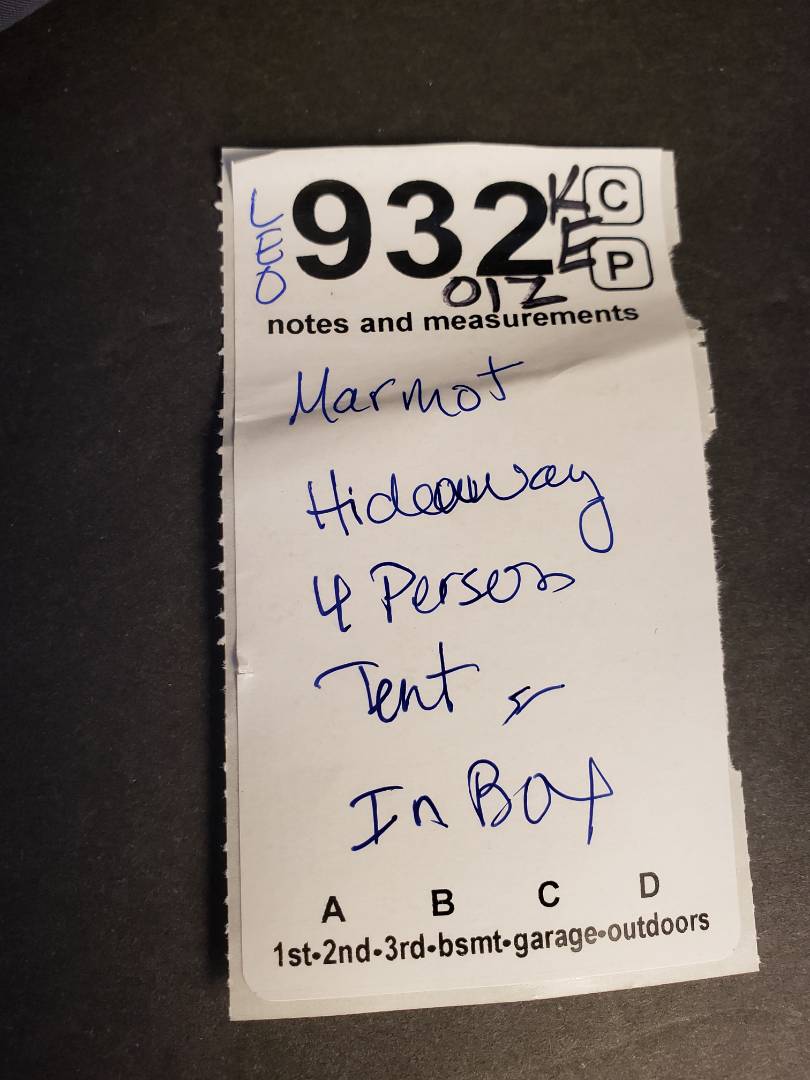 LEO 932 KE C P
012
notes and measurements
Marmot
Hideaway
4 Person
Tent
In Box
A B C D
1st•2nd•3rd•bsmt•garage•outdoors